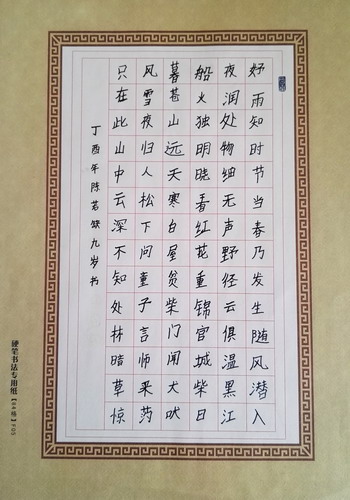 好雨知时节当春乃发生随风潜入
夜润处物细无声野径云俱温黑江
船火独明晓看红花重锦官城柴日
暮苍山远天寒白屋贫柴门闻犬吠
风雪夜归人松下问童子言师采药
只在此山中云深不知处林暗草惊
丁酉年陈九岁书
硬笔书法专用纸【84格】